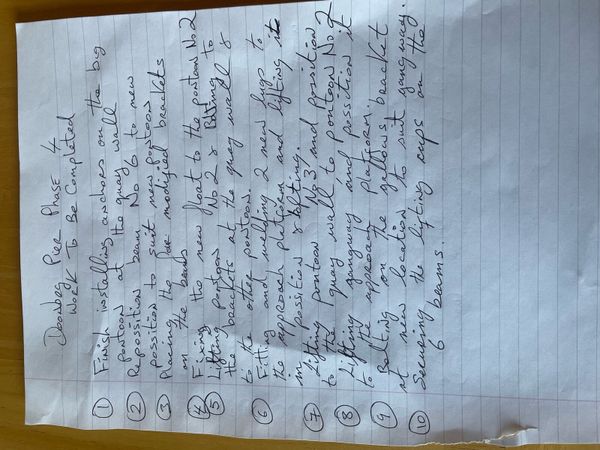 Doonbeg Pier Phase 4
Work To Be Completed
① Finish installing anchors on the big
pontoon at the quay wall
② Reposstion beam No 6 to new
possition to suit new pontoon
③ Placing the five modified brackets
on the beams
④ Fixing the new float to the pontoon No 2
⑤ Lifting pontoon No 2 & Bolting to
the brackets at the quay wall &
to the other pontoon.
⑥ Fitting and welding 2 new lugs to
the approach platform and lifting it
in possition & bolting.
⑦ Lifting pontoon No 3 and possition
to the quay wall to pontoon No 2
⑧ Lifting gangway and possition it
to the approach platform.
⑨ Bolting on the gallows bracket
at new location to suit gangway.
⑩ Securing the lifting caps on the
6 beams.